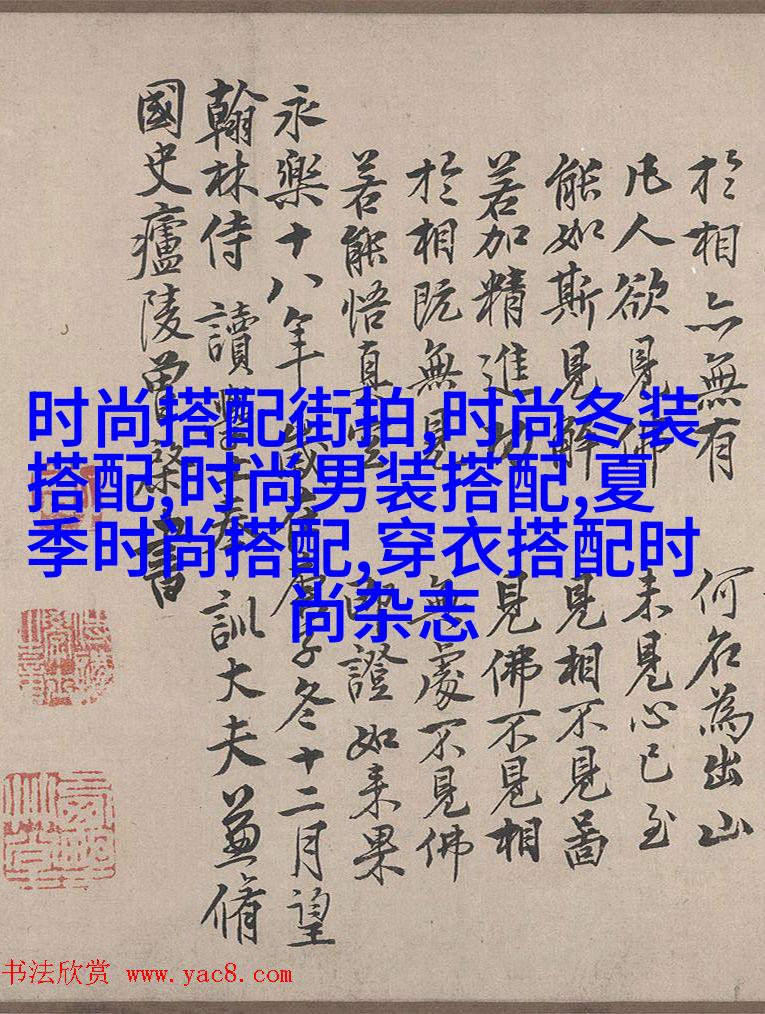 於相亦無有 何名為出山
凡人欲見佛 未見心已至
能如斯見解 見相不見啚
若加精進功 見佛不見相
於相既無見 無處不見佛
若能悟真空 即證如来果
永樂十八年歲在庚子冬十二月望
翰林侍讀學士奉訓大夫兼脩
國史廬陵曾棨書
时尚搭配街拍,时尚冬装
搭配,时尚男装搭配,夏
季时尚搭配,穿衣搭配时
尚杂志
书法欣赏 www.yac8.com